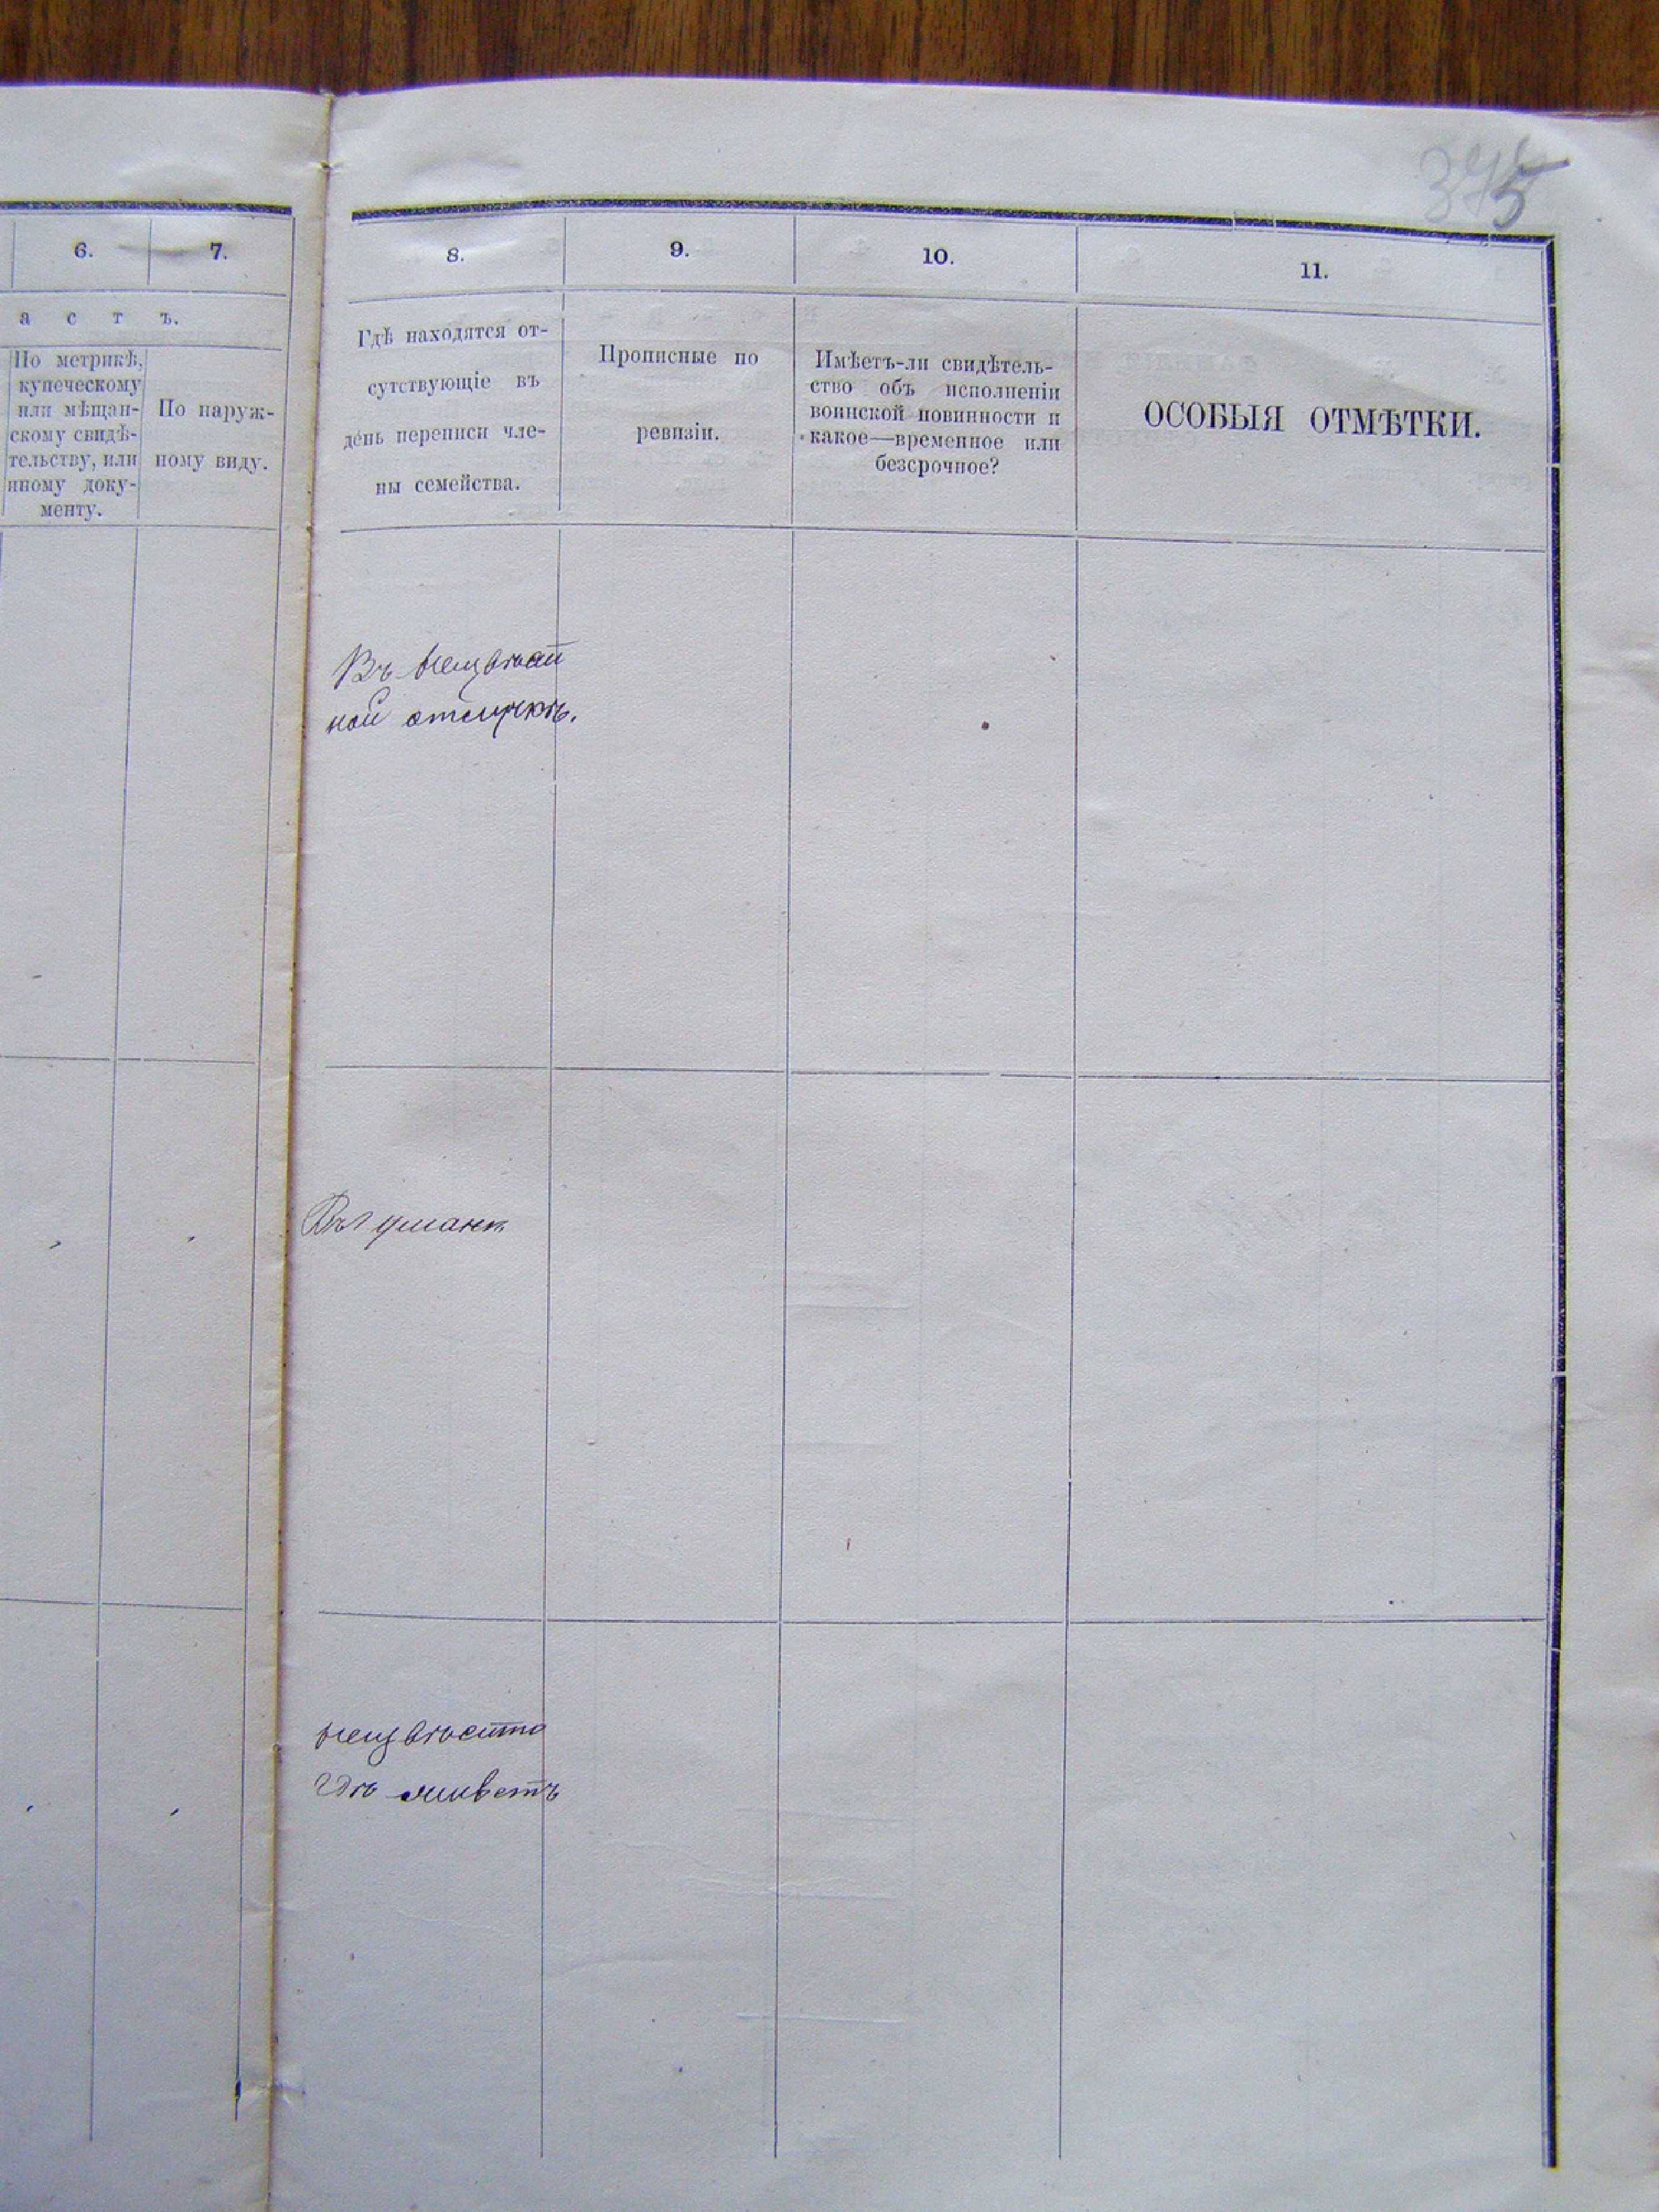 375
6.
7.
8.
9.
10.
11.
а с т ъ.
По метрикѣ,
купеческому
или мѣщан-
скому свидѣ-
тельству, или
иному доку-
менту.
По наруж-
ному виду.
Гдѣ находятся от-
сутствующіе въ
день переписи чле-
ны семейства.
Прописные по
ревизіи.
Имѣетъ-ли свидѣтель-
ство объ исполненіи
воинской повинности и
какое—временное или
безсрочное?
ОСОБЫЯ ОТМѢТКИ.
Въ неизвѣст
ной отлучкѣ.
Въ Умани
неизвѣстно
гдѣ живетъ